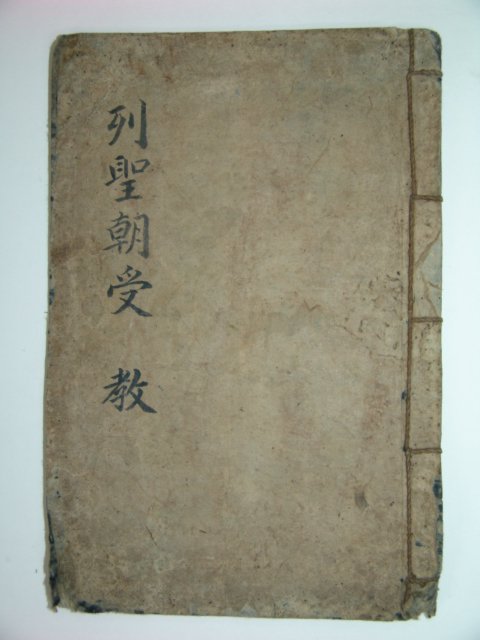 列聖朝受 教